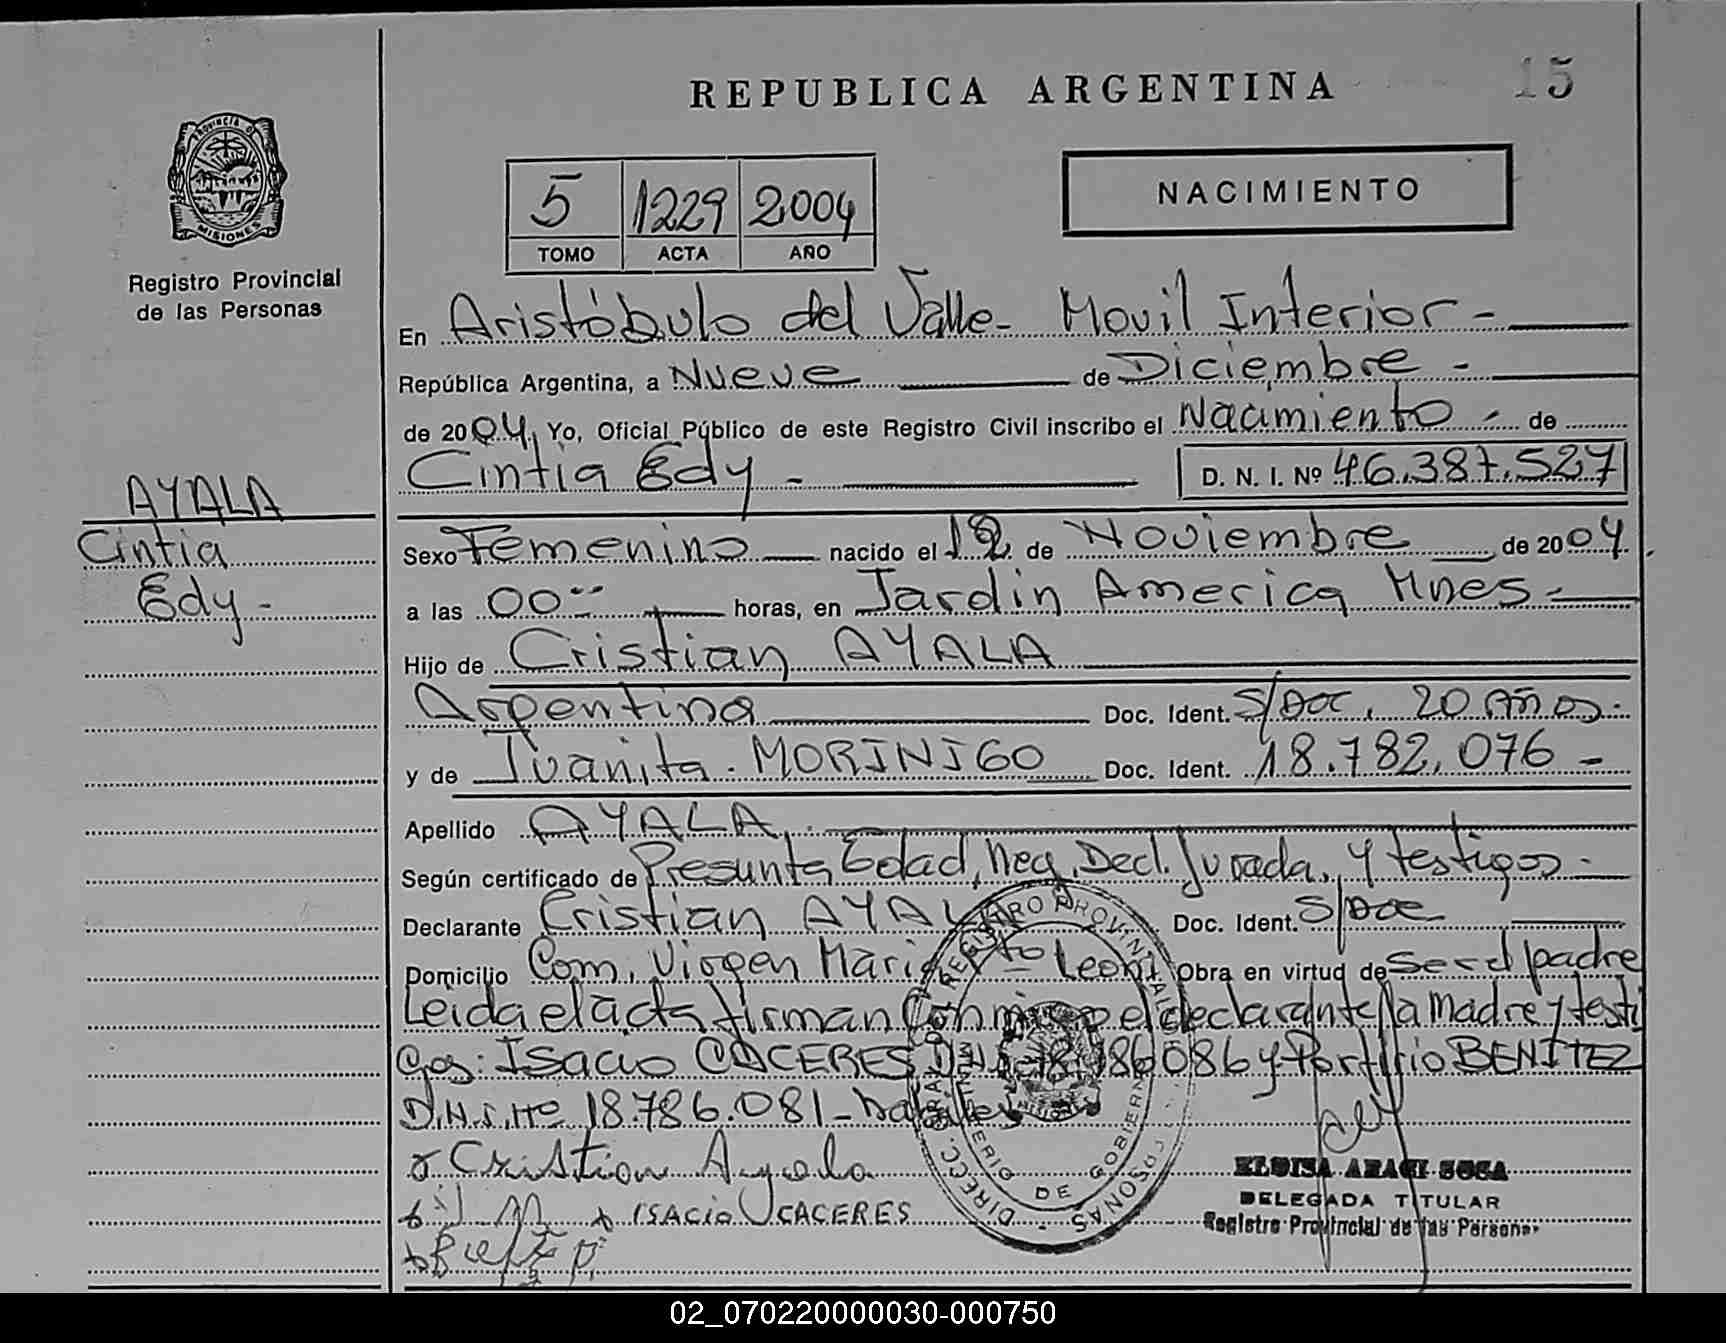 REPUBLICA ARGENTINA
15
PROVINCIA DE MISIONES
Registro Provincial
de las Personas
5 1229 2004
TOMO ACTA AÑO
NACIMIENTO
En Aristóbulo del Valle - Movil Interior -
República Argentina, a Nueve de Diciembre -
de 2004, Yo, Oficial Público de este Registro Civil inscribo el Nacimiento - de
Cintia Edy - D. N. I. Nº 46.387.527
AYALA
Cintia
Edy -
Sexo Femenino nacido el de Noviembre de 2004
a las 00 horas, en Jardin America Mnes -
Hijo de Cristian AYALA
Argentina Doc. Ident. S/Doc. 20 Años -
y de Juanita - MORINIGO Doc. Ident. 18.782.076 -
Apellido AYALA
Según certificado de Presunta Edad, Neg, Decl. Jurada, y testigos -
Declarante Cristian AYALA Doc. Ident. S/Doc
Domicilio Com. Virgen Maria Pto Leoni Obra en virtud de ser el padre
Leida el acta firman Conmigo el declarante la madre y testi
gos: Isacio CACERES y Porfirio BENITEZ
D.N.I. Nº 18.786.081 -
Cristian Ayala
ISACIO CACERES
DIRECC. GRAL. DEL REGISTRO PROVINCIAL DE LAS PERSONAS
MINISTERIO DE GOBIERNO
MISIONES
ELOISA ARACI SOSA
DELEGADA TITULAR
Registro Provincial de las Personas
02_070220000030-000750